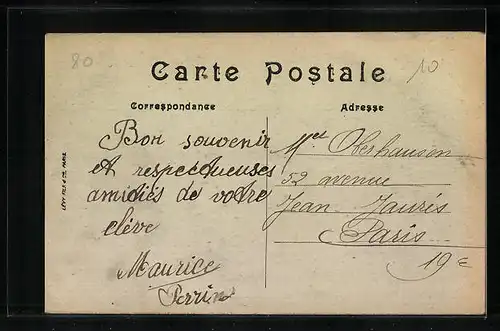 80
10
Carte Postale
Correspondance
Adresse
Bon souvenir
et respectueuses
amidiés de votre
élève
Maurice
Perrin
Mel Oberhausen
52 avenue
Jean Jaurés
Paris
19e
LÉVY FILS & Cie, PARIS